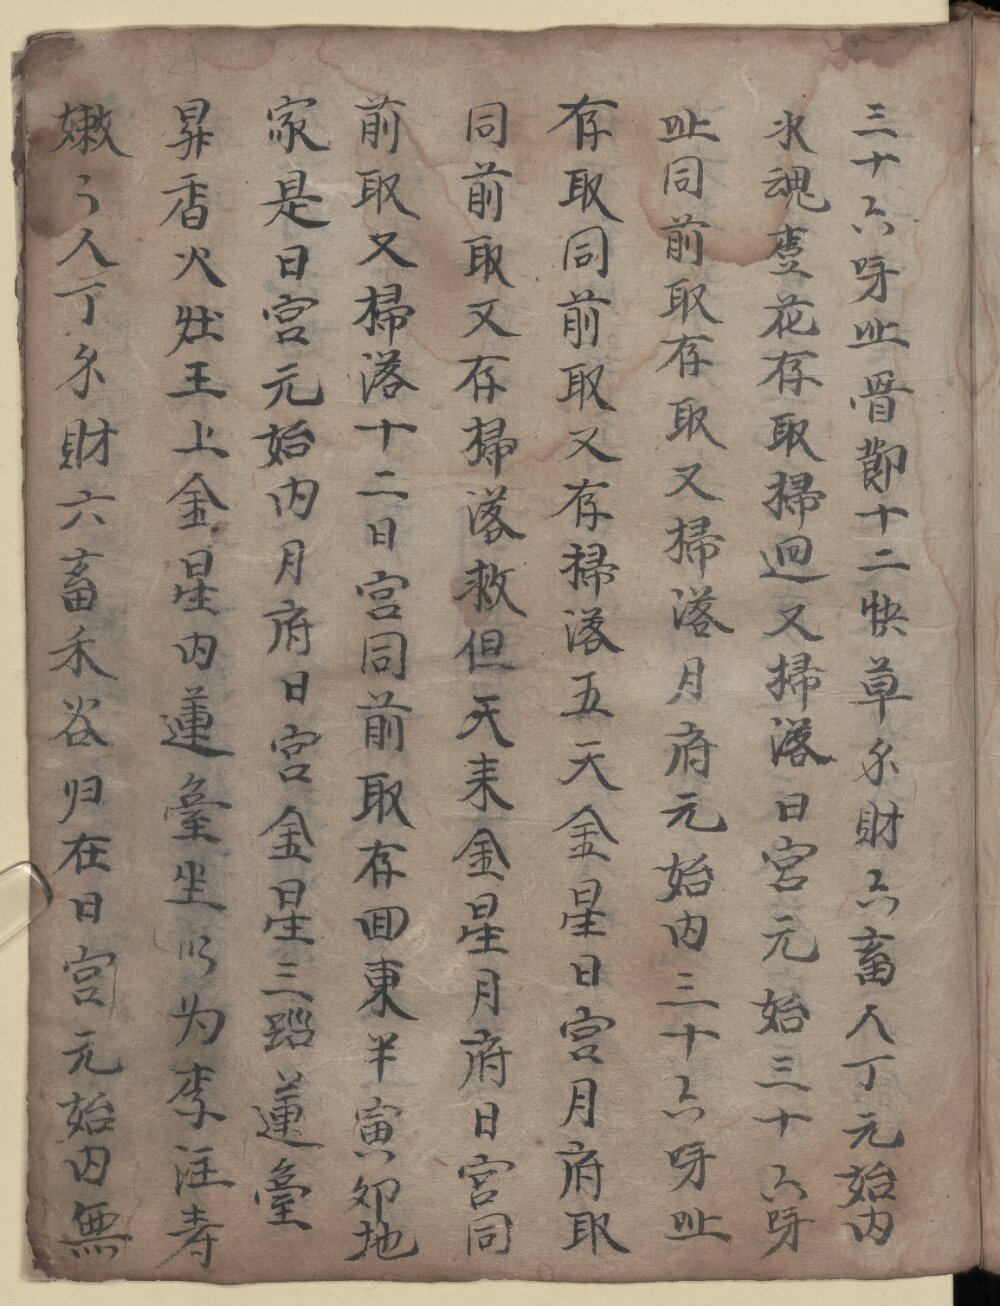 三十六呀止骨節十二快草糸財六畜人丁元始内
氷魂变花存取掃迴又掃落日宮元始三十六呀
止同前取存取又掃落月府元始内三十六呀止
存取同前取又存掃落五天金星日宮月府取
同前取又存掃落救但天耒金星月府日宮同
前取又掃落十二日宮同前取存回東半寅卯地
家是日宮元始内月府日宮金星三蹈蓮臺
昇香火灶王上金星内蓮臺坐以为李注寿
嫩了人丁糸財六畜禾谷归在日宮元始内無